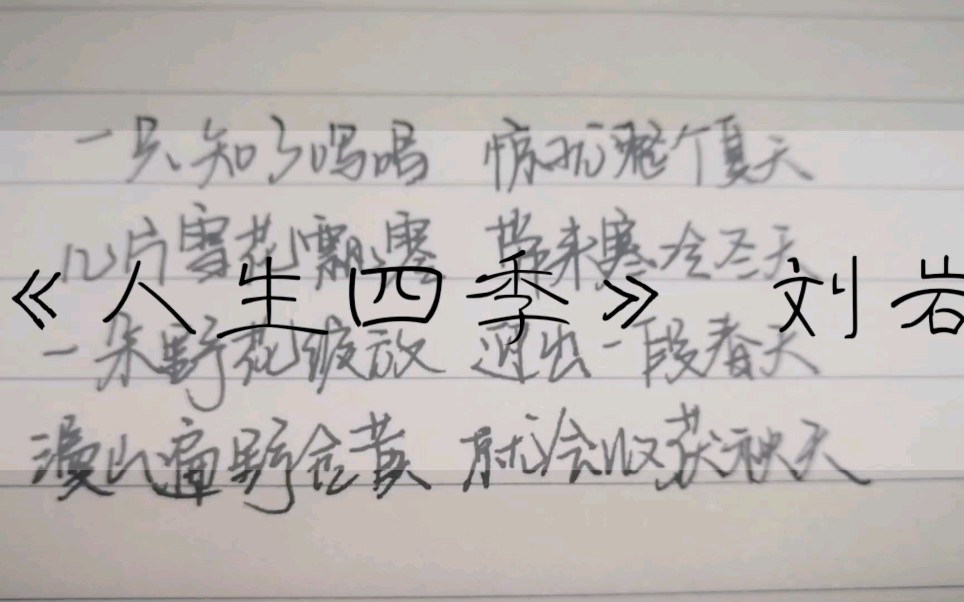 一只知了鸣唱 惊扰整个夏天
几片雪花飘零 带来寒冷冬天
《人生四季》 刘岩
一朵野花绽放 迎出一段春天
漫山遍野金黄 就会收获秋天